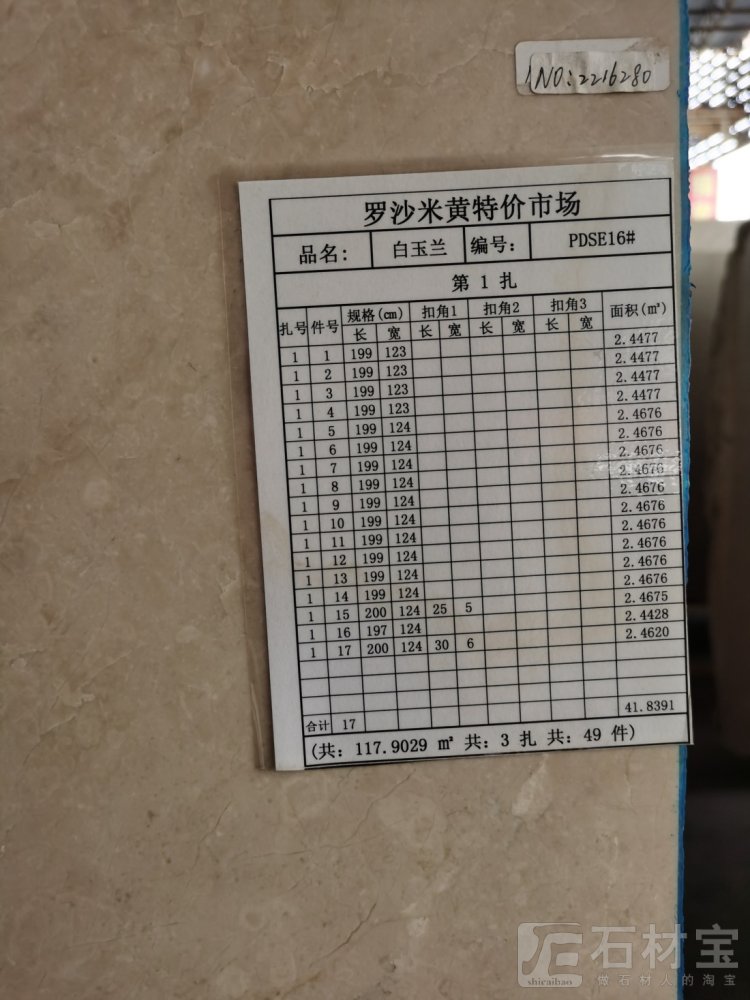 NO:2216280
罗沙米黄特价市场
品名: 白玉兰 编号: PDSE16#
第 1 扎
扎号 件号 规格(cm) 扣角1 扣角2 扣角3 面积(㎡)
长 宽 长 宽 长 宽 长 宽
1 1 199 123 2.4477
1 2 199 123 2.4477
1 3 199 123 2.4477
1 4 199 123 2.4477
1 5 199 124 2.4676
1 6 199 124 2.4676
1 7 199 124 2.4676
1 8 199 124 2.4676
1 9 199 124 2.4676
1 10 199 124 2.4676
1 11 199 124 2.4676
1 12 199 124 2.4676
1 13 199 124 2.4676
1 14 199 124 2.4676
1 15 200 124 25 5 2.4675
1 16 197 124 2.4428
1 17 200 124 30 6 2.4620
合计 17 41.8391
(共: 117.9029 ㎡ 共: 3 扎 共: 49 件)
石材宝
shicaibao 做石材人的淘宝